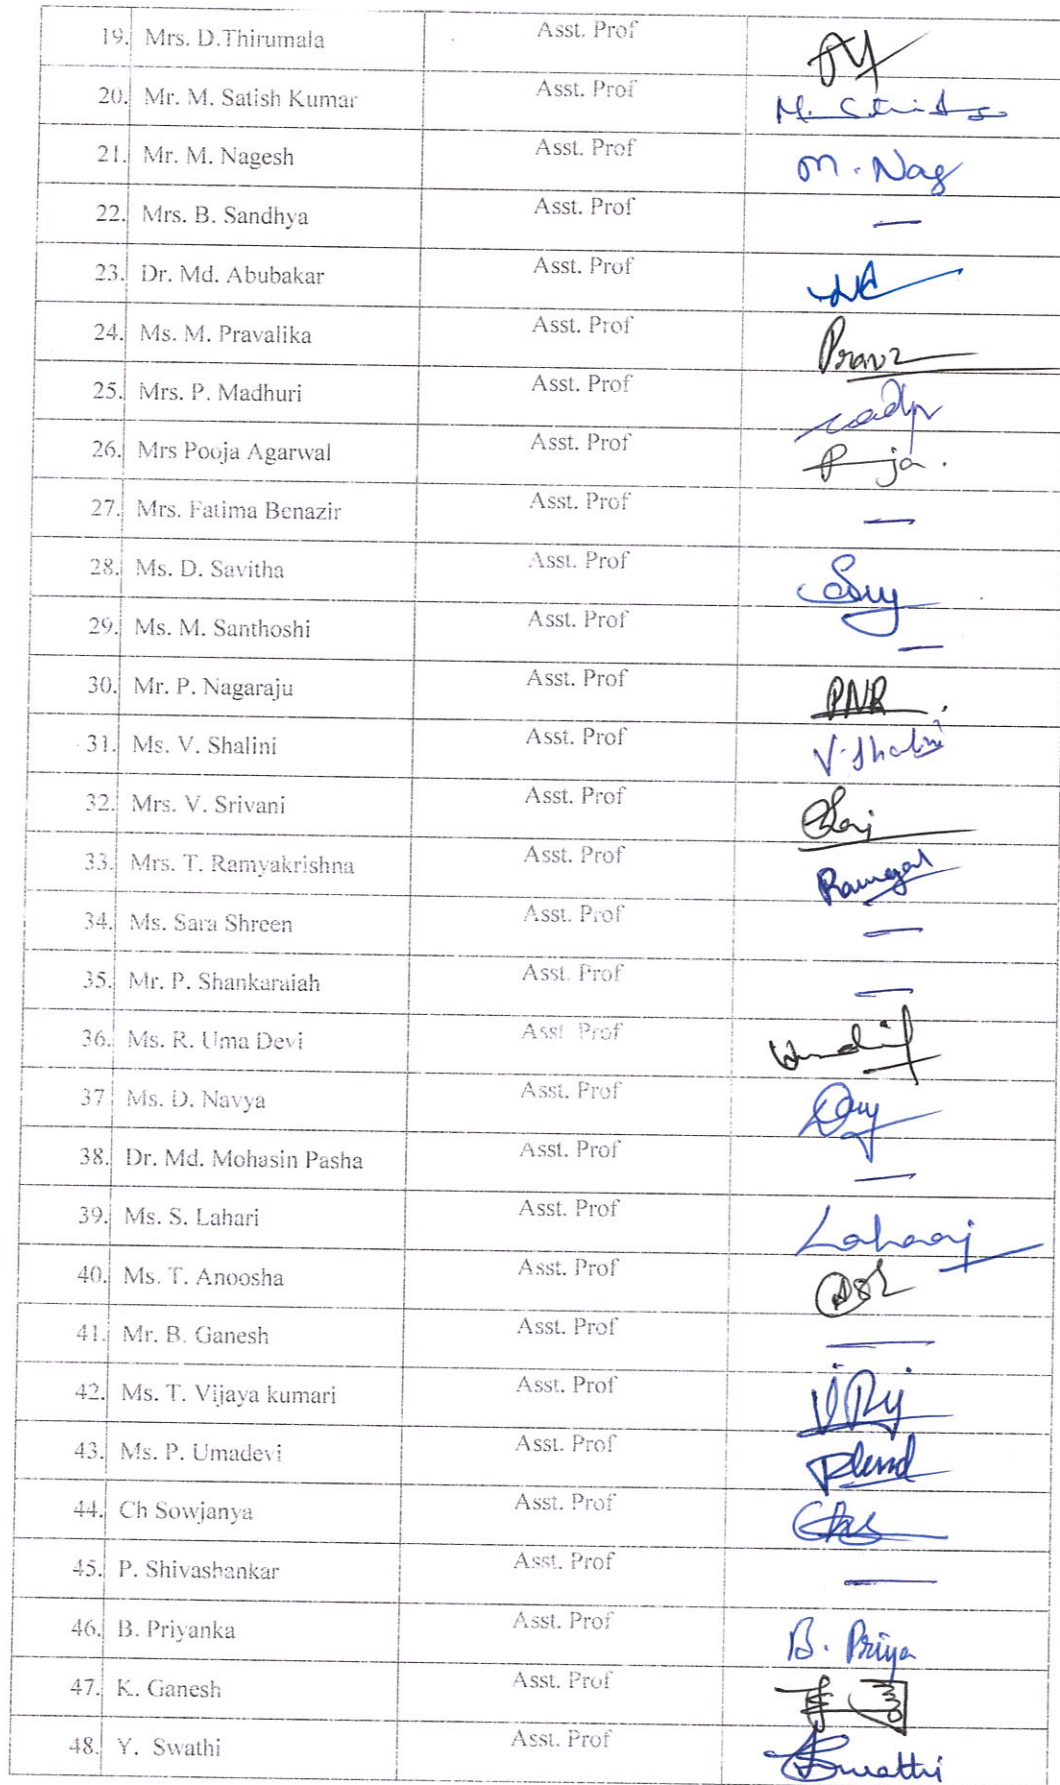 19. Mrs. D.Thirumala Asst. Prof
20. Mr. M. Satish Kumar Asst. Prof
21. Mr. M. Nagesh Asst. Prof M. Nag
22. Mrs. B. Sandhya Asst. Prof —
23. Dr. Md. Abubakar Asst. Prof
24. Ms. M. Pravalika Asst. Prof
25. Mrs. P. Madhuri Asst. Prof
26. Mrs Pooja Agarwal Asst. Prof
27. Mrs. Fatima Benazir Asst. Prof —
28. Ms. D. Savitha Asst. Prof
29. Ms. M. Santhoshi Asst. Prof —
30. Mr. P. Nagaraju Asst. Prof PNR
31. Ms. V. Shalini Asst. Prof V. Shalini
32. Mrs. V. Srivani Asst. Prof
33. Mrs. T. Ramyakrishna Asst. Prof
34. Ms. Sara Shreen Asst. Prof —
35. Mr. P. Shankaraiah Asst. Prof —
36. Ms. R. Uma Devi Asst Prof
37 Ms. D. Navya Asst. Prof
38. Dr. Md. Mohasin Pasha Asst. Prof —
39. Ms. S. Lahari Asst. Prof
40. Ms. T. Anoosha Asst. Prof
41. Mr. B. Ganesh Asst. Prof —
42. Ms. T. Vijaya kumari Asst. Prof
43. Ms. P. Umadevi Asst. Prof
44. Ch Sowjanya Asst. Prof
45. P. Shivashankar Asst. Prof —
46. B. Priyanka Asst. Prof B. Priya
47. K. Ganesh Asst. Prof
48. Y. Swathi Asst. Prof Swathi